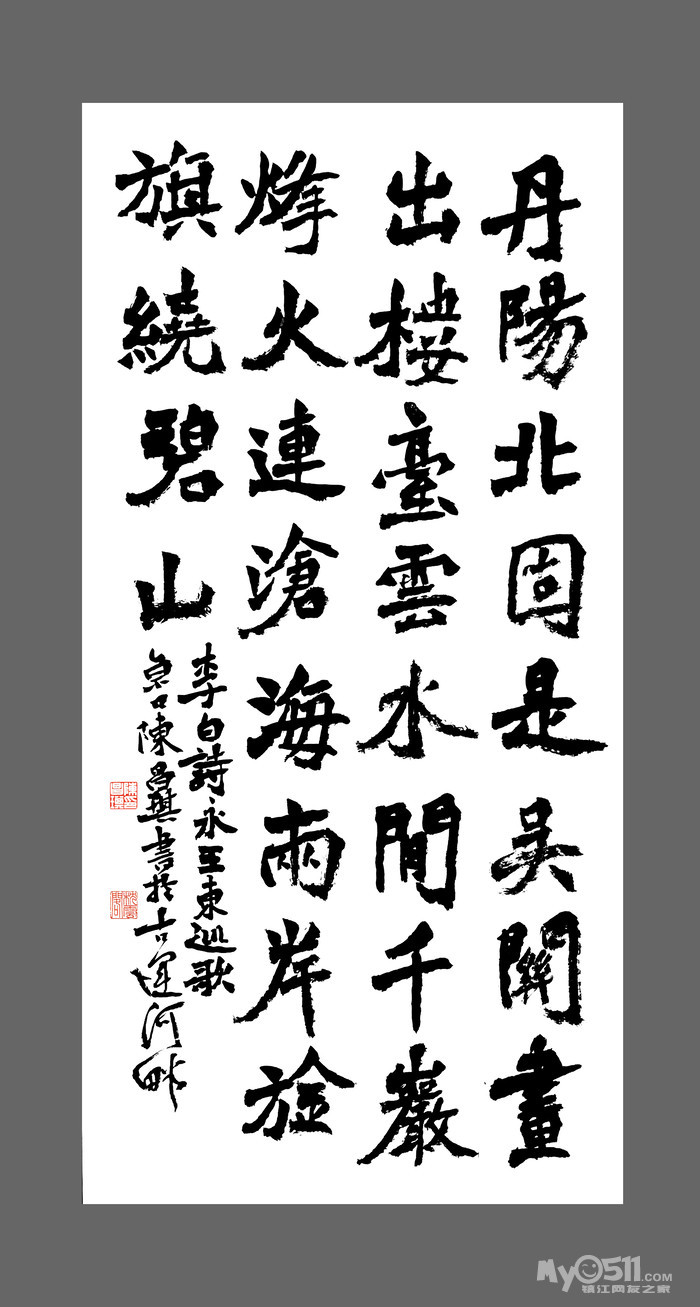 丹陽北固是吳關畫
出樓臺雲水間千巖
烽火連滄海兩岸旌
旗繞碧山
李白詩永王東巡歌
魯陳昌書於古運河畔
My0511.COM
镇江网友之家